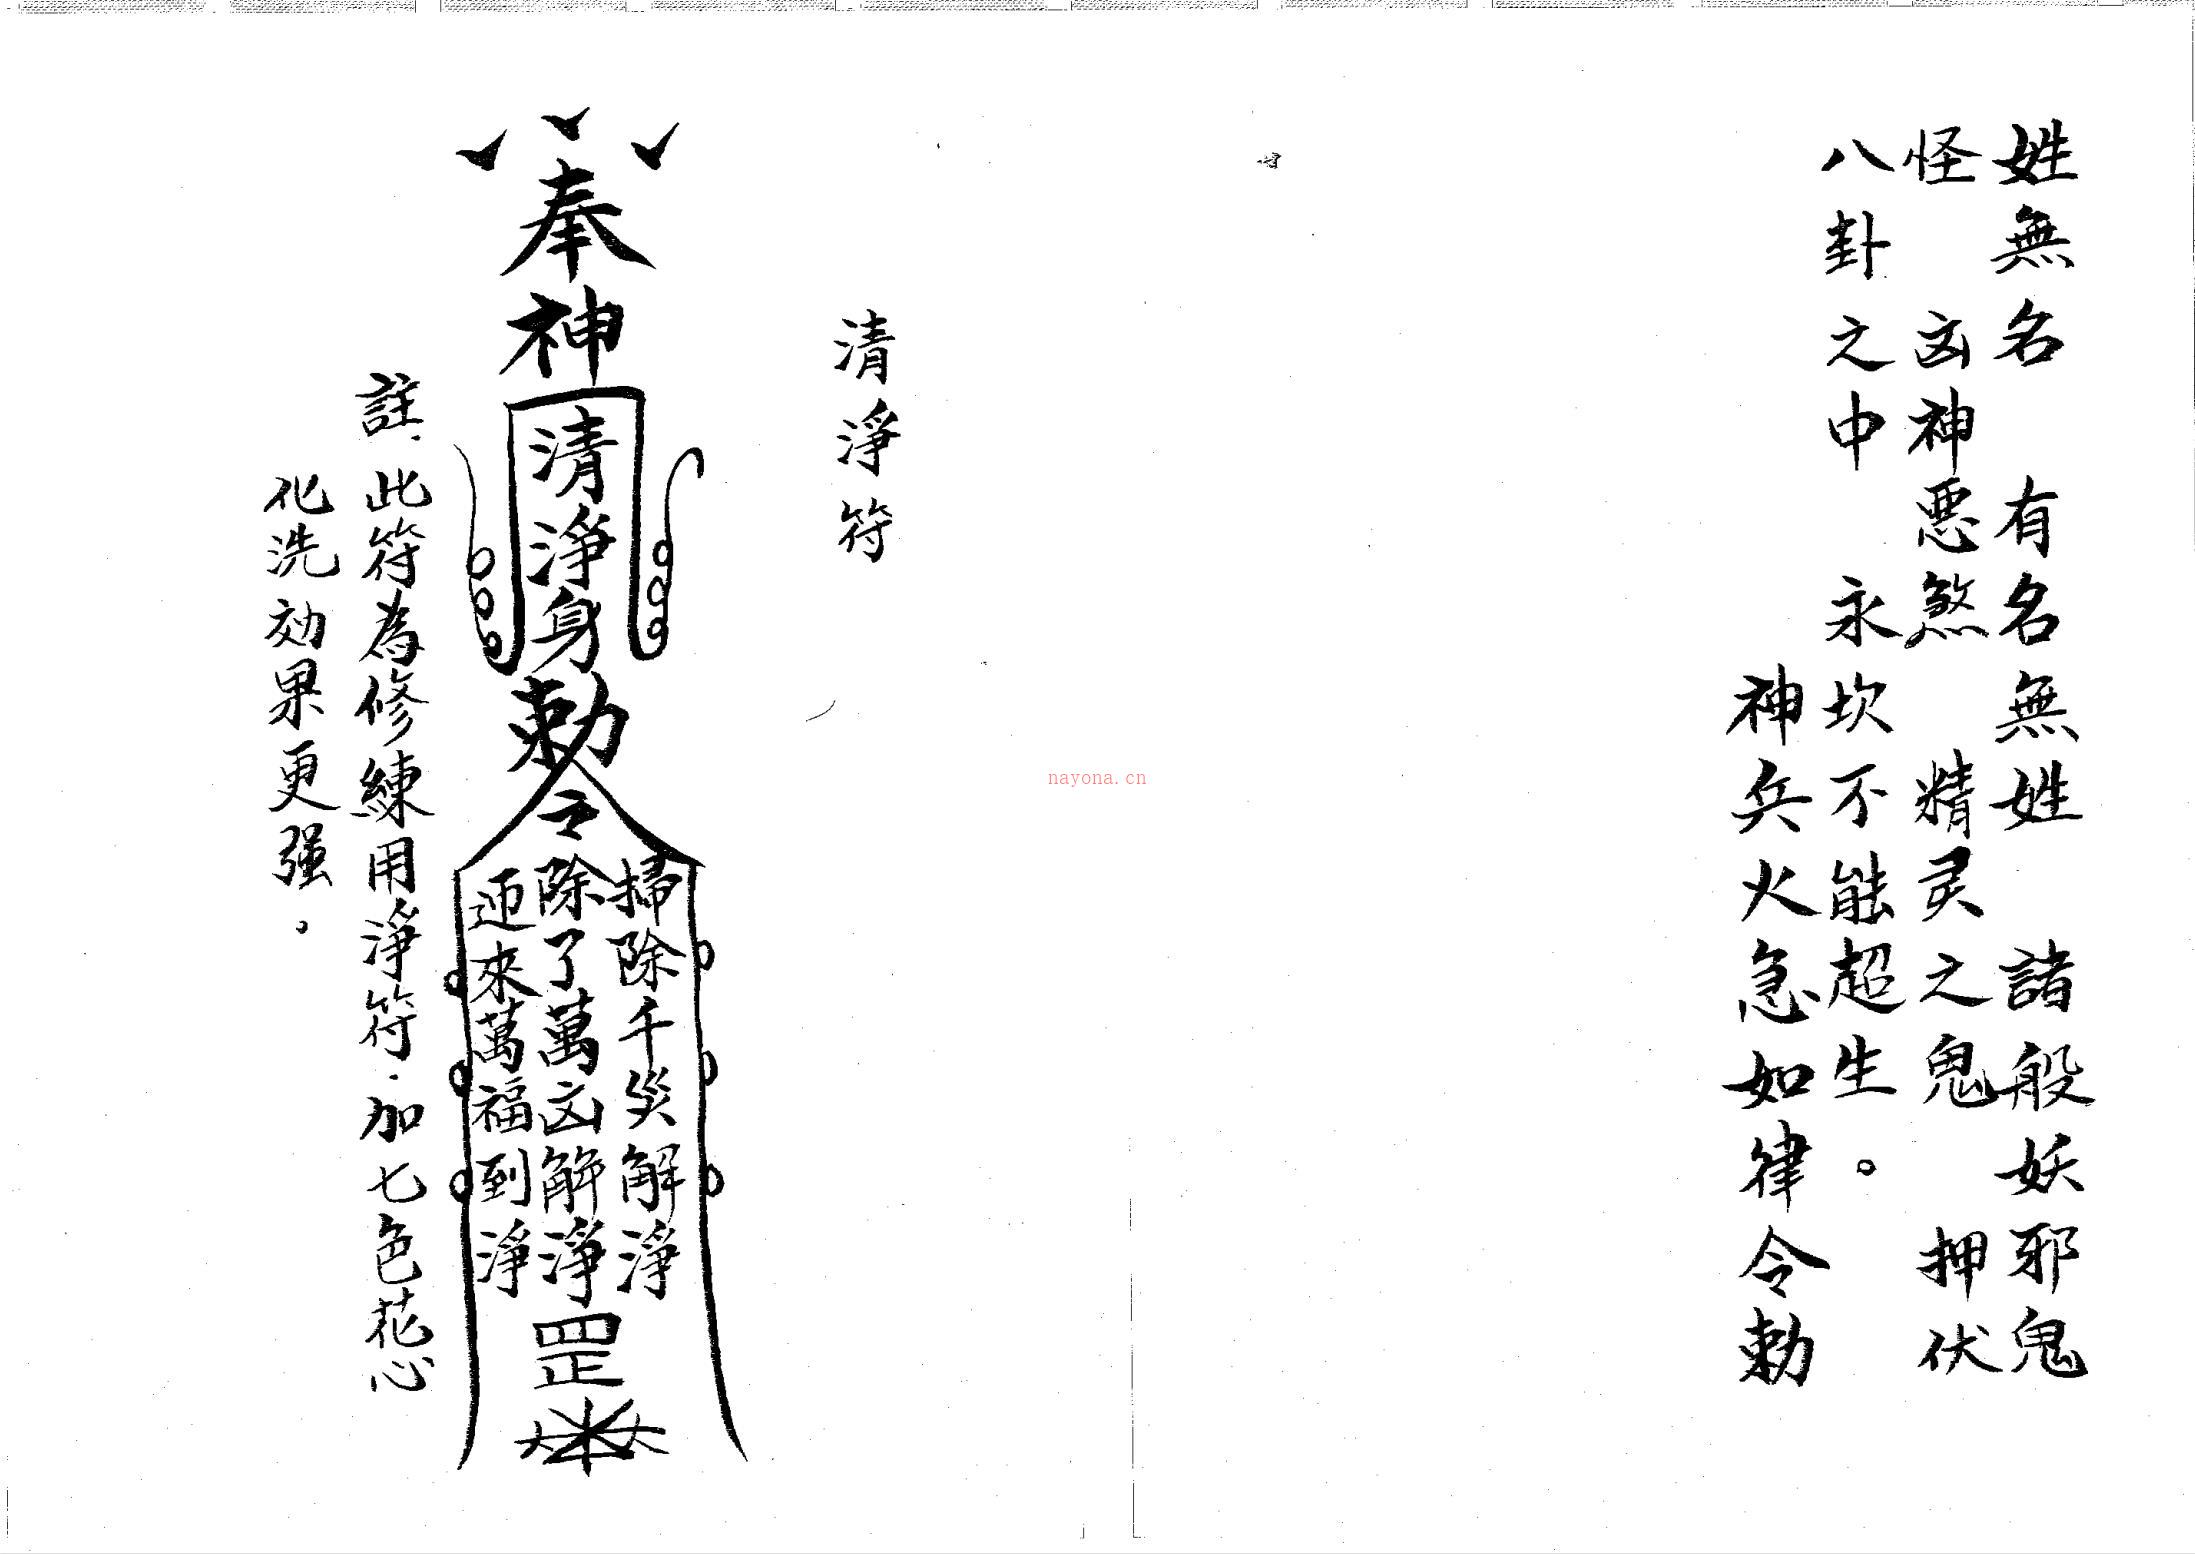 姓無名 有名無姓 諸般妖邪鬼
怪 凶神惡煞 精灵之鬼 押伏
八卦之中 永坎不能超生。
神兵火急如律令勅
清淨符
奉
神
清淨身
勅
令
掃除千災解淨
除了萬凶解淨
迎來萬福到淨
罡
註.此符為修練用淨符.加七色花心
化洗効果更强。
nayona.cn